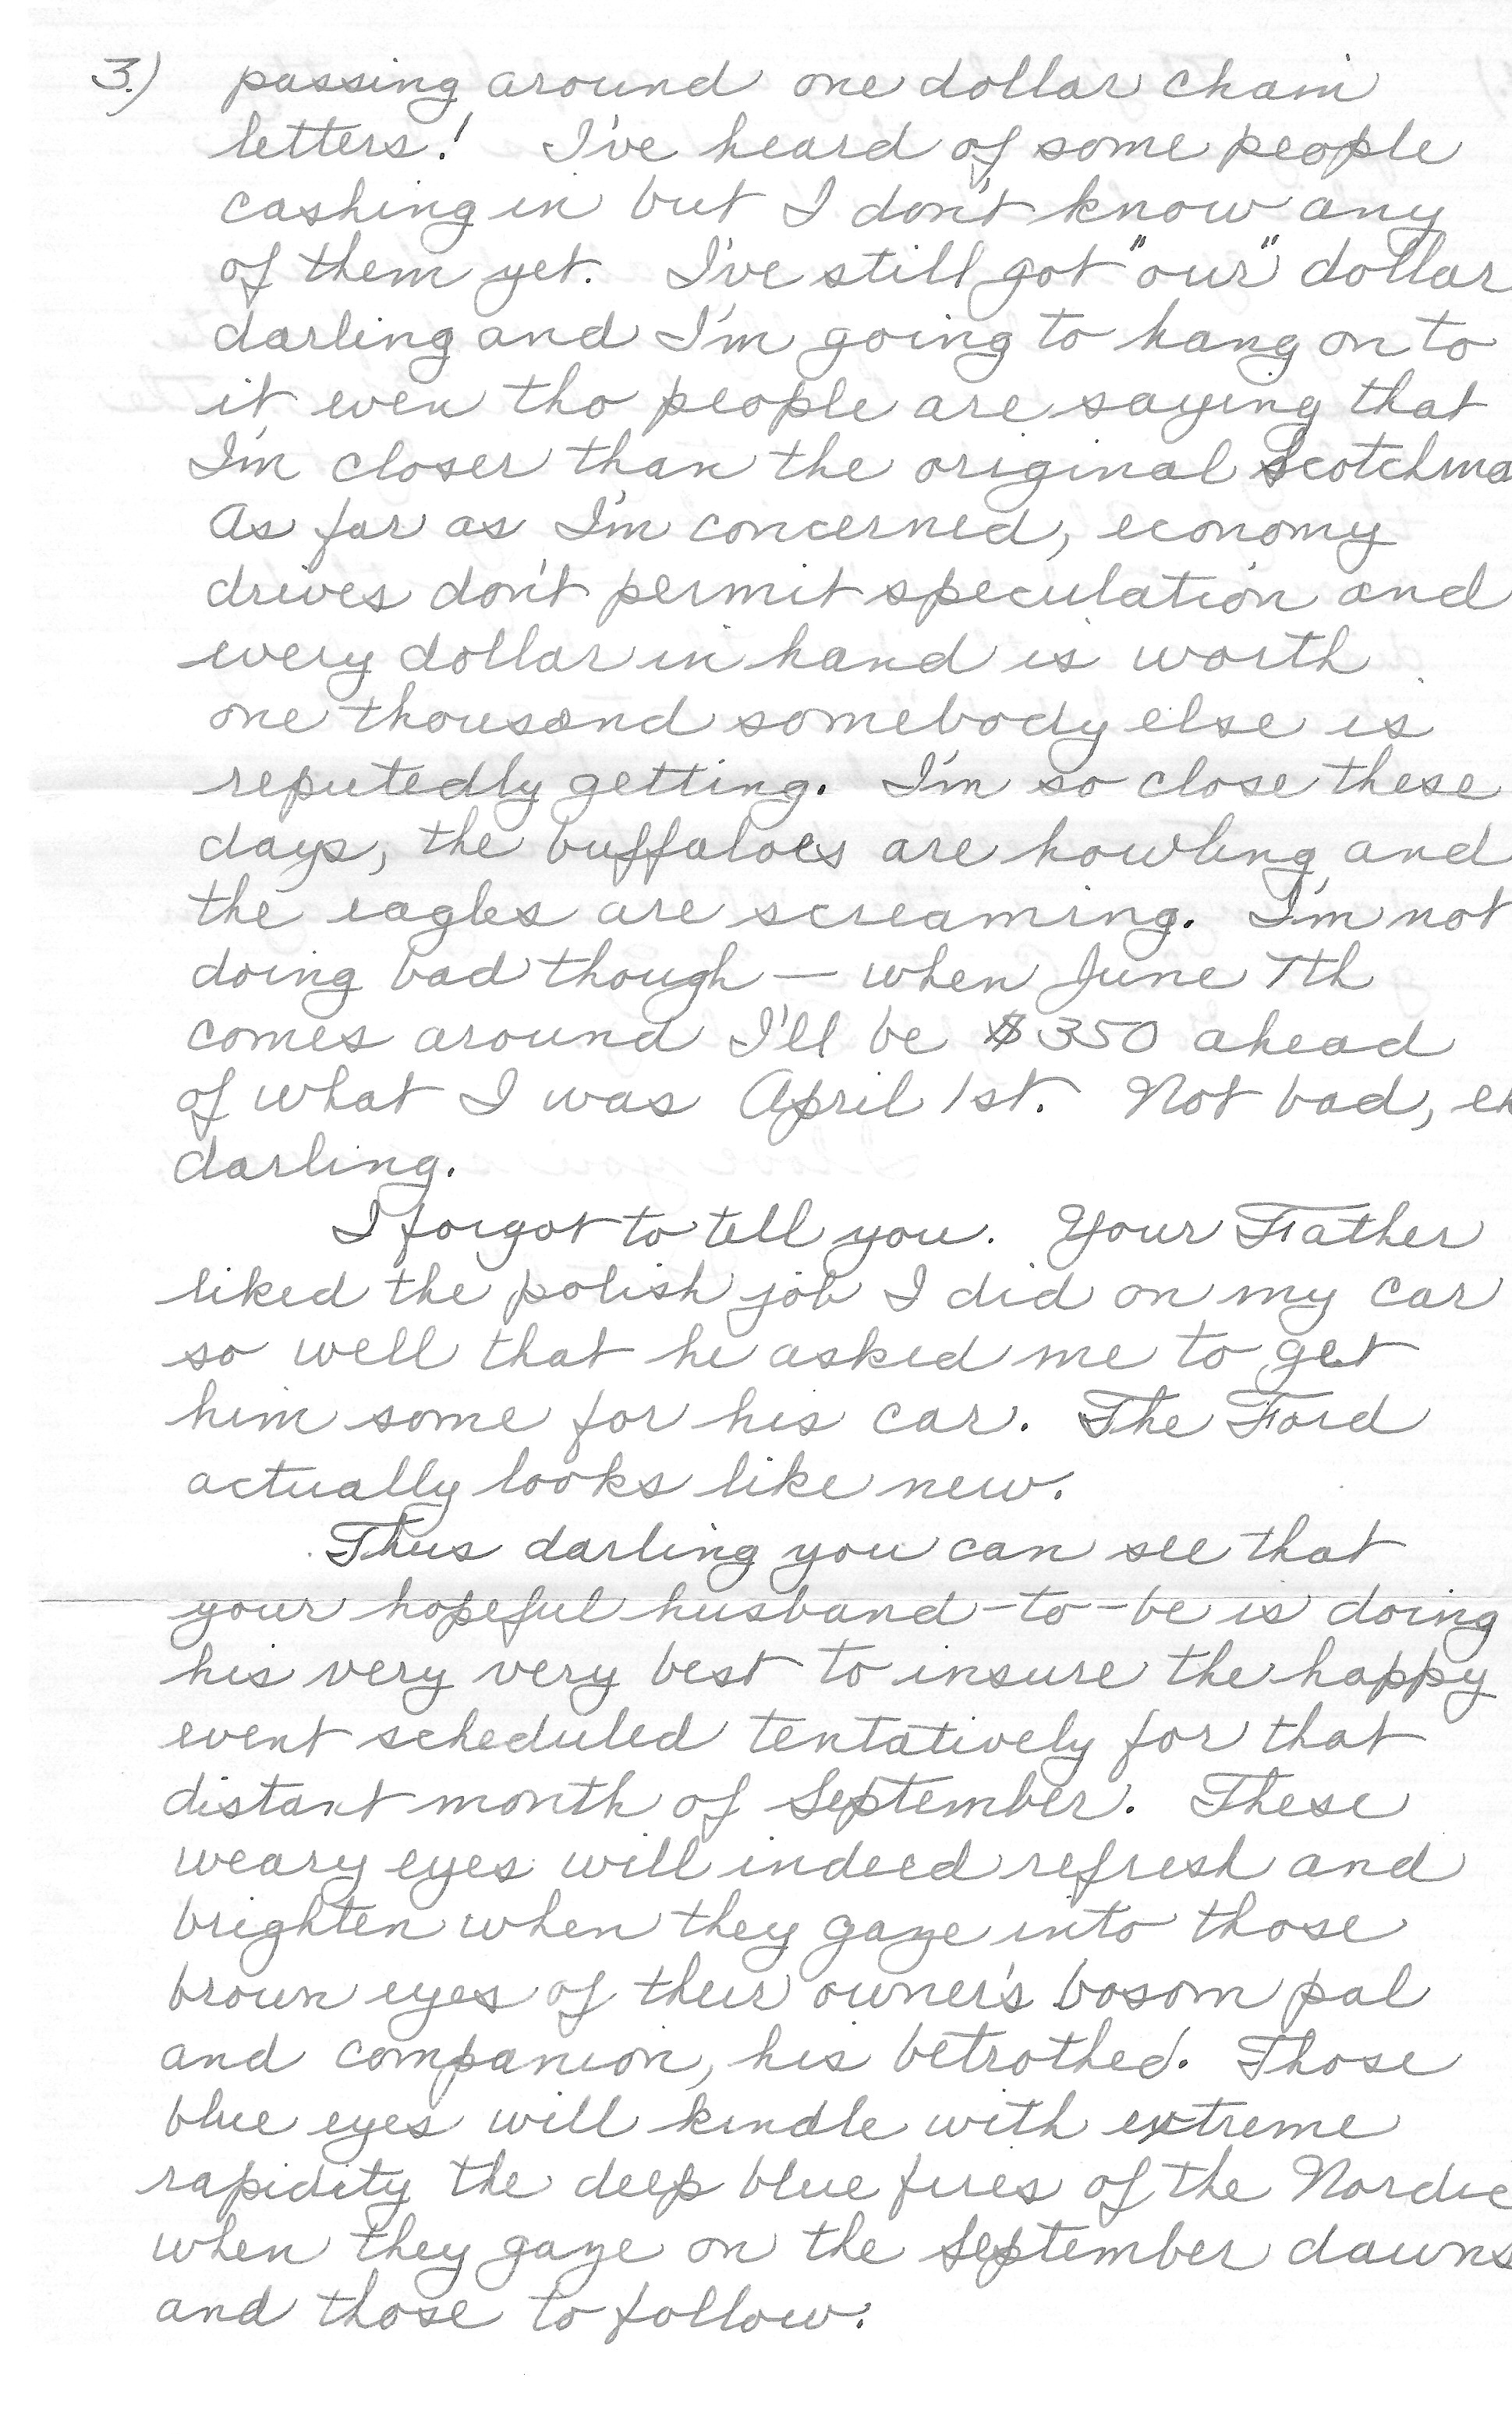 3.) passing around one dollar chain
letters! I've heard of some people
cashing in but I don't know any
of them yet. I've still got "our" dollar
darling and I'm going to hang on to
it even tho people are saying that
I'm closer than the original Scotchma
As far as I'm concerned, economy
drives don't permit speculation and
every dollar in hand is worth
one thousand somebody else is
reputedly getting. I'm so close these
days, the buffaloes are howling and
the eagles are screaming. I'm not
doing bad though — when June 7th
comes around I'll be $350 ahead
of what I was April 1st. Not bad, eh
darling.
I forgot to tell you. Your Father
liked the polish job I did on my car
so well that he asked me to get
him some for his car. The Ford
actually looks like new.
Thus darling you can see that
your hopeful husband-to-be is doing
his very very best to insure the happy
event scheduled tentatively for that
distant month of September. These
weary eyes will indeed refresh and
brighten when they gaze into those
brown eyes of their owner's bosom pal
and companion, his betrothed. Those
blue eyes will kindle with extreme
rapidity the deep blue fires of the Nordic
when they gaze on the September dawns
and those to follow.